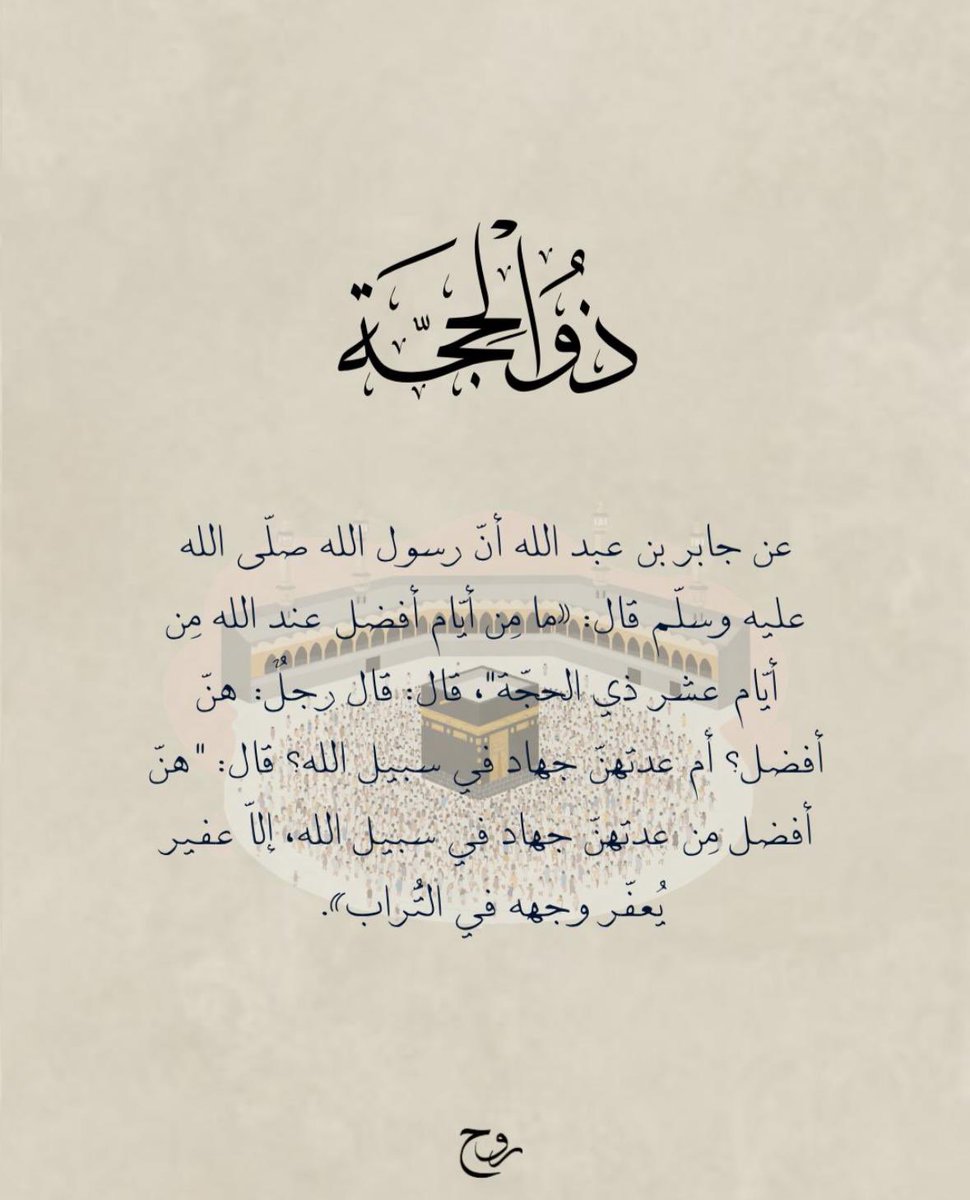 ذُو الْحِجَّة
عن جابر بن عبد الله أنّ رسول الله صلّى الله
عليه وسلّم قال: «ما مِن أيّام أفضل عند الله مِن
أيّام عشر ذي الحجّة"، قال: قال رجلٌ: هنّ
أفضل؟ أم عدتهنّ جهاد في سبيل الله؟ قال: "هنّ
أفضل مِن عدتهنّ جهاد في سبيل الله، إلاّ عفير
يُعفّر وجهه في التُّراب».
روح